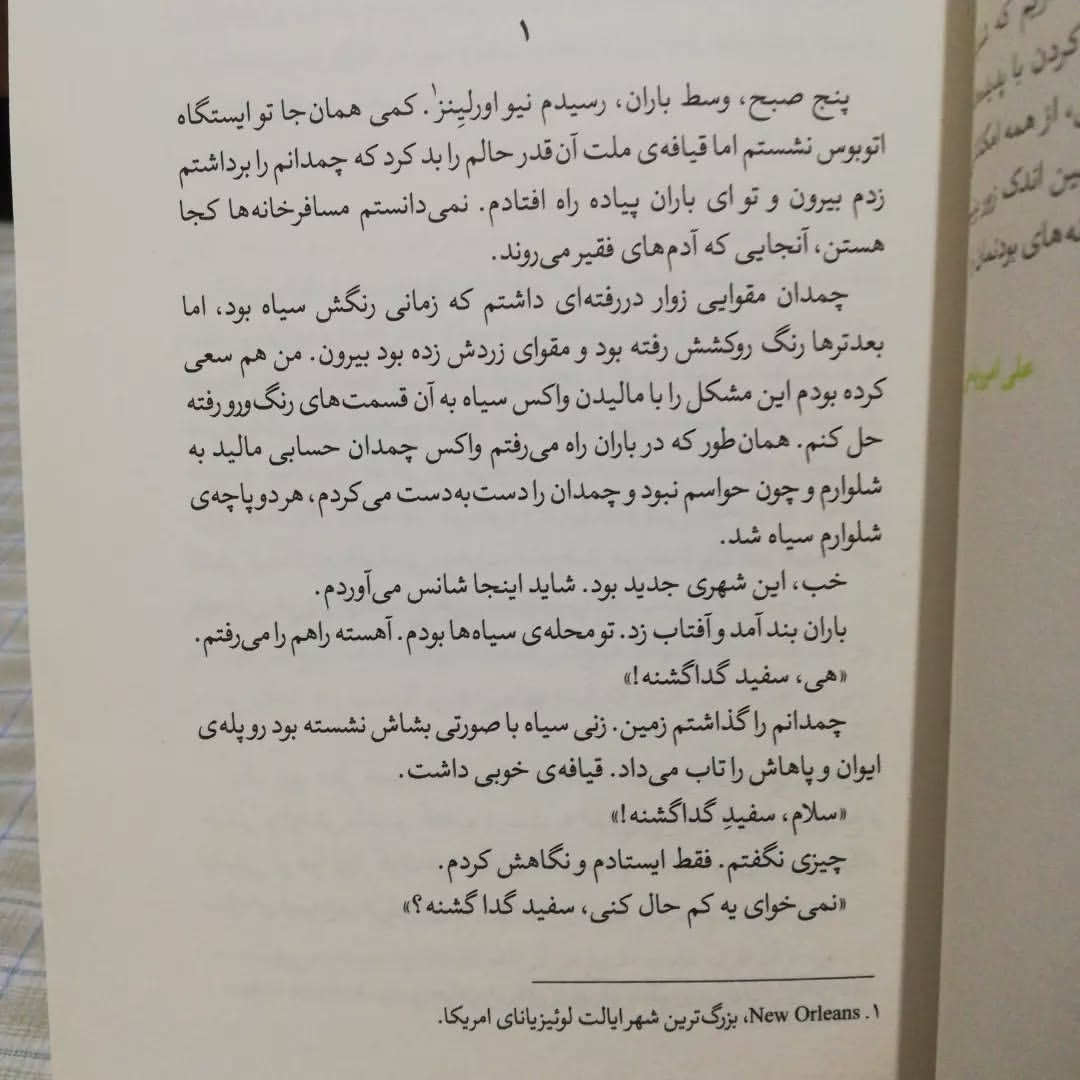 ۱
پنج صبح، وسط باران، رسیدم نیو اورلِینز۱. کمی همان‌جا تو ایستگاه
اتوبوس نشستم اما قیافه‌ی ملت آن‌قدر حالم را بد کرد که چمدانم را برداشتم
زدم بیرون و تو ای باران پیاده راه افتادم. نمی‌دانستم مسافرخانه‌ها کجا
هستن، آنجایی که آدم‌های فقیر می‌روند.
چمدان مقوایی زوار دررفته‌ای داشتم که زمانی رنگش سیاه بود، اما
بعدترها رنگ روکشش رفته بود و مقوای زردش زده بود بیرون. من هم سعی
کرده بودم این مشکل را با مالیدن واکس سیاه به آن قسمت‌های رنگ‌ورو رفته
حل کنم. همان‌طور که در باران راه می‌رفتم واکس چمدان حسابی مالید به
شلوارم و چون حواسم نبود و چمدان را دست‌به‌دست می‌کردم، هر دو پاچه‌ی
شلوارم سیاه شد.
خب، این شهری جدید بود. شاید اینجا شانس می‌آوردم.
باران بند آمد و آفتاب زد. تو محله‌ی سیاه‌ها بودم. آهسته راهم را می‌رفتم.
«هی، سفید گداگشنه!»
چمدانم را گذاشتم زمین. زنی سیاه با صورتی بشاش نشسته بود رو پله‌ی
ایوان و پاهاش را تاب می‌داد. قیافه‌ی خوبی داشت.
«سلام، سفیدِ گداگشنه!»
چیزی نگفتم. فقط ایستادم و نگاهش کردم.
«نمی‌خوای یه کم حال کنی، سفید گدا گشنه؟»
۱. New Orleans، بزرگ‌ترین شهر ایالت لوئیزیانای امریکا.
کردن با
از همه
اندک
های بودنمان
علی